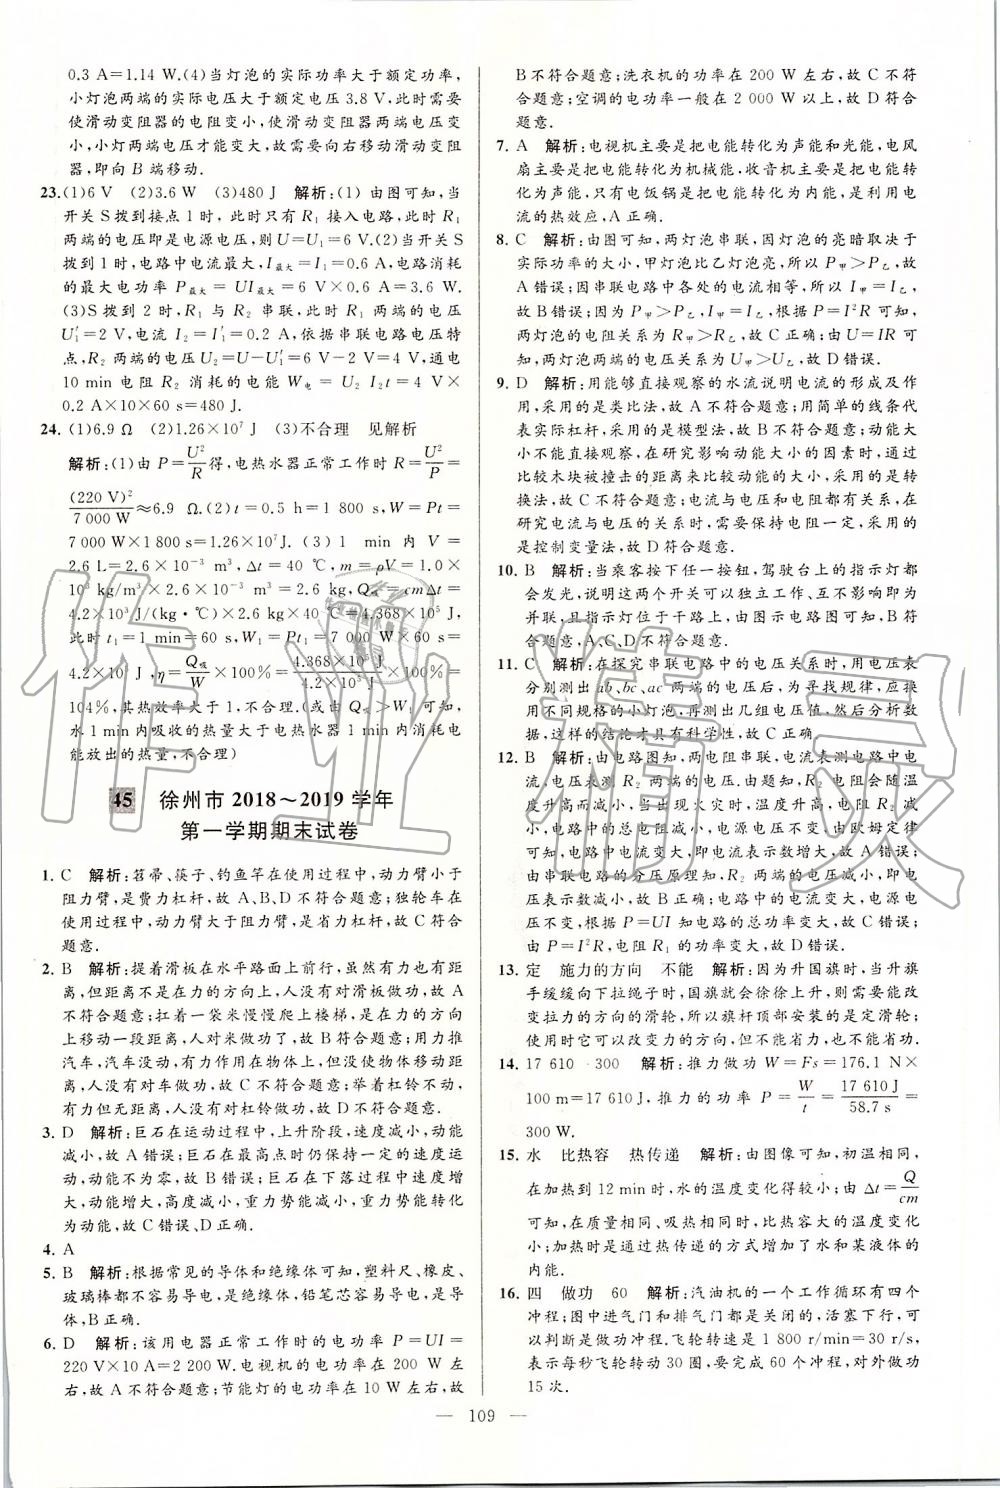 0.3 A=1.14 W.(4)当灯泡的实际功率大于额定功率,
小灯泡两端的实际电压大于额定电压3.8 V,此时需要
使滑动变阻器的电阻变小,使滑动变阻器两端电压变
小,小灯两端电压才能变大,故需要向右移动滑动变阻
器,即向 B 端移动.
23.(1)6 V (2)3.6 W (3)480 J 解析:(1) 由图可知,当
开关 S 拨到接点 1 时,此时只有 R₁ 接入电路,此时 R₁
两端的电压即是电源电压,则 U=U₁=6 V.(2)当开关 S
拨到 1 时,电路中电流最大,I最大=I₁=0.6 A,电路消耗
的最大电功率 P最大=UI最大=6 V×0.6 A=3.6 W.
(3)S 拨到 2 时,R₁ 与 R₂ 串联,此时 R₁ 两端的电压
U₁′=2 V,电流 I₂=I₁′=0.2 A,依据串联电路电压特
点,R₂ 两端的电压 U₂=U−U₁′=6 V−2 V=4 V,通电
10 min 电阻 R₂ 消耗的电能 W电=U₂ I₂t=4 V×
0.2 A×10×60 s=480 J.
24.(1)6.9 Ω (2)1.26×10⁷ J (3)不合理 见解析
解析:(1)由 P=U²/R得,电热水器正常工作时 R=U²/P=
(220 V)²/7 000 W≈6.9 Ω.(2)t=0.5 h=1 800 s,W=Pt=
7 000 W×1 800 s=1.26×10⁷ J.(3) 1 min 内 V=
2.6 L=2.6×10⁻³ m³,Δt=40 ℃,m=ρV=1.0×
10³ kg/m³×2.6×10⁻³ m³=2.6 kg,Q吸=cmΔt=
4.2×10³ J/(kg·℃)×2.6 kg×40 ℃=4.368×10⁵ J,
此时 t₁=1 min=60 s,W₁=Pt₁=7 000 W×60 s=
4.2×10⁵ J,η=Q吸/W×100%=4.368×10⁵ J/4.2×10⁵ J×100%=
104%,其热效率大于 1,不合理.(或由 Q吸>W₁ 可知,
水 1 min内吸收的热量大于电热水器 1 min内消耗电
能放出的热量,不合理)
45 徐州市 2018～2019 学年
第一学期期末试卷
1. C 解析:笤帚、筷子、钓鱼竿在使用过程中,动力臂小于
阻力臂,是费力杠杆,故 A、B、D 不符合题意;独轮车在
使用过程中,动力臂大于阻力臂,是省力杠杆,故 C 符合
题意.
2. B 解析:提着滑板在水平路面上前行,虽然有力也有距
离,但距离不是在力的方向上,人没有对滑板做功,故 A
不符合题意;扛着一袋米慢慢爬上楼梯,是在力的方向
上移动一段距离,人对米做了功,故 B 符合题意;用力推
汽车,汽车没动,有力作用在物体上,但没使物体移动距
离,人没有对车做功,故 C 不符合题意;举着杠铃不动,
有力但无距离,人没有对杠铃做功,故 D 不符合题意.
3. D 解析:巨石在运动过程中,上升阶段,速度减小,动能
减小,故 A 错误;巨石在最高点时仍保持一定的速度,
动能不为零,故 B 错误;巨石在下落过程中,速度增
大,动能增大,高度减小,重力势能减小,重力势能转化
为动能,故 C 错误、D 正确.
4. A
5. B 解析:根据常见的导体和绝缘体可知,塑料尺、橡皮、
玻璃棒都不容易导电,是绝缘体,铅笔芯容易导电,是导
体,B 正确.
6. D 解析:该用电器正常工作时的电功率 P=UI=
220 V×10 A=2 200 W.电视机的功率在 200 W 左
右,故 A 不符合题意;节能灯的电功率在 10 W 左右,故
B 不符合题意;洗衣机的功率在 200 W 左右,故 C 不符
合题意;空调的电功率一般在 2 000 W以上,故 D 符合
题意.
7. A 解析:电视机主要是把电能转化为声能和光能,电风
扇主要是把电能转化为机械能,收音机主要是把电能转
化为声能,只有电饭锅是把电能转化为内能,是利用电
流的热效应,A 正确.
8. C 解析:由图可知,两灯泡串联,因灯泡的亮暗取决于
实际功率的大小,甲灯泡比乙灯泡亮,所以 P甲>P乙,故
A 错误;因串联电路中各处的电流相等,所以 I甲=I乙,
故 B 错误;因为 P甲>P乙,I甲=I乙,根据 P=I²R 可知,
两灯泡的电阻关系为 R甲>R乙,故 C 正确;由 U=IR可
知,两灯泡两端的电压关系为 U甲>U乙,故 D 错误.
9. D 解析:用能够直接观察的水流说明电流的形成及作
用,采用的是类比法,故 A 不符合题意;用简单的线条代
表实际杠杆,采用的是模型法,故 B 不符合题意;动能大
小不能直接观察,在研究影响动能大小的因素时,通过
比较木块被撞击的距离来比较动能的大小,采用的是转
换法,故 C 不符合题意;电流与电压和电阻都有关系,在
研究电流与电压的关系时,需要保持电阻一定,采用的
是控制变量法,故 D 符合题意.
10. B 解析:当乘客按下任一按钮,驾驶台上的指示灯都
会发光,说明这两个开关可以独立工作、互不影响即为
并联,且指示灯位于干路上,由图示电路图可知,B 符
合题意,A、C、D 不符合题意.
11. C 解析:在探究串联电路中的电压关系时,用电压表
分别测出 ab、bc、ac 两端的电压后,为寻找规律,应换
用不同规格的小灯泡,再测出几组电压值,然后分析数
据,这样的结论才具有科学性,故 C 正确.
12. B 解析:由电路图知,两电阻串联,电流表测电路中电
流,电压表测 R₂ 两端的电压.由题知,R₂ 阻值会随温
度升高而减小,现发现温度升高,则 R₂ 阻值减小,串联
电路中的总电阻减小,电源电压不变,由欧姆定律
可知,电路中电流变大,即电流表示数变大,故 A 错误;
由串联电路的分压原理知,R₂ 两端的电压减小,即电
压表示数减小,故 B 正确;电路中的电流变大,电源电
压不变,根据 P=UI 知电路的总功率变大,故 C 错误;
由 P=I²R,电阻 R₁ 的功率变大,故 D 错误.
13. 定 施力的方向 不能 解析:因为升国旗时,当升旗
手缓缓向下拉绳子时,国旗就会徐徐上升,则需要能改
变拉力的方向的滑轮,所以旗杆顶部安装的是定滑轮;
使用时它可以改变力的方向,但不能省力,也不能省功.
14. 17 610 300 解析:推力做功 W=Fs=176.1 N×
100 m=17 610 J,推力的功率 P=W/t=17 610 J/58.7 s=
300 W.
15. 水 比热容 热传递 解析:由图像可知,初温相同,
在加热到 12 min时,水的温度变化得较小;由 Δt=Q/cm
可知,在质量相同、吸热相同时,比热容大的温度变化
小;加热是通过热传递的方式增加了水和某液体的
内能.
16. 四 做功 60 解析:汽油机的一个工作循环有四个
冲程;图中进气门和排气门都是关闭的,活塞下行,可
以判断是做功冲程.飞轮转速是 1 800 r/min=30 r/s,
表示每秒飞轮转动 30 圈,要完成 60 个冲程,对外做功
15 次.
— 109 —
作业精灵